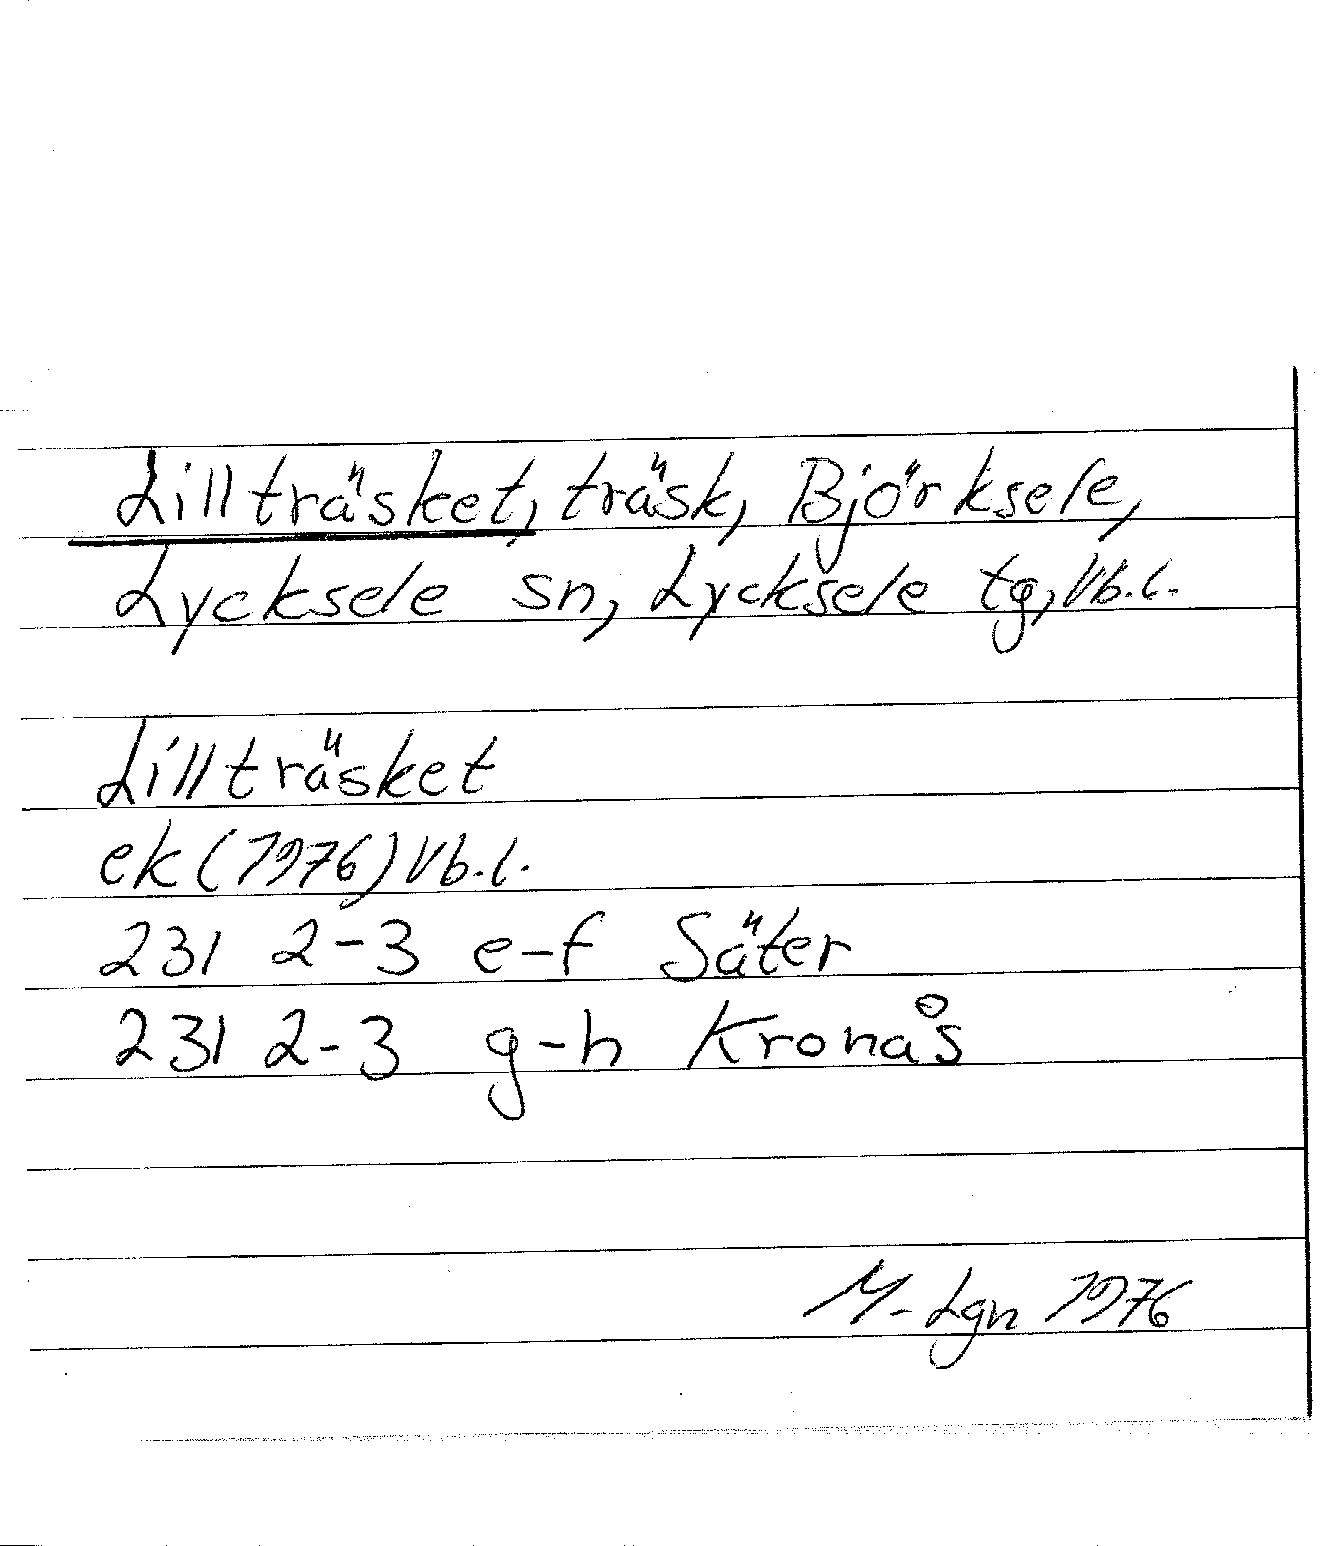 Lillträsket, träsk, Björksele,
Lycksele sn, Lycksele tg, Vb.l.
Lillträsket
ek (1976) Vb.l.
231 2-3 e-f Säter
231 2-3 g-h Kronås
M-Lgn 1976